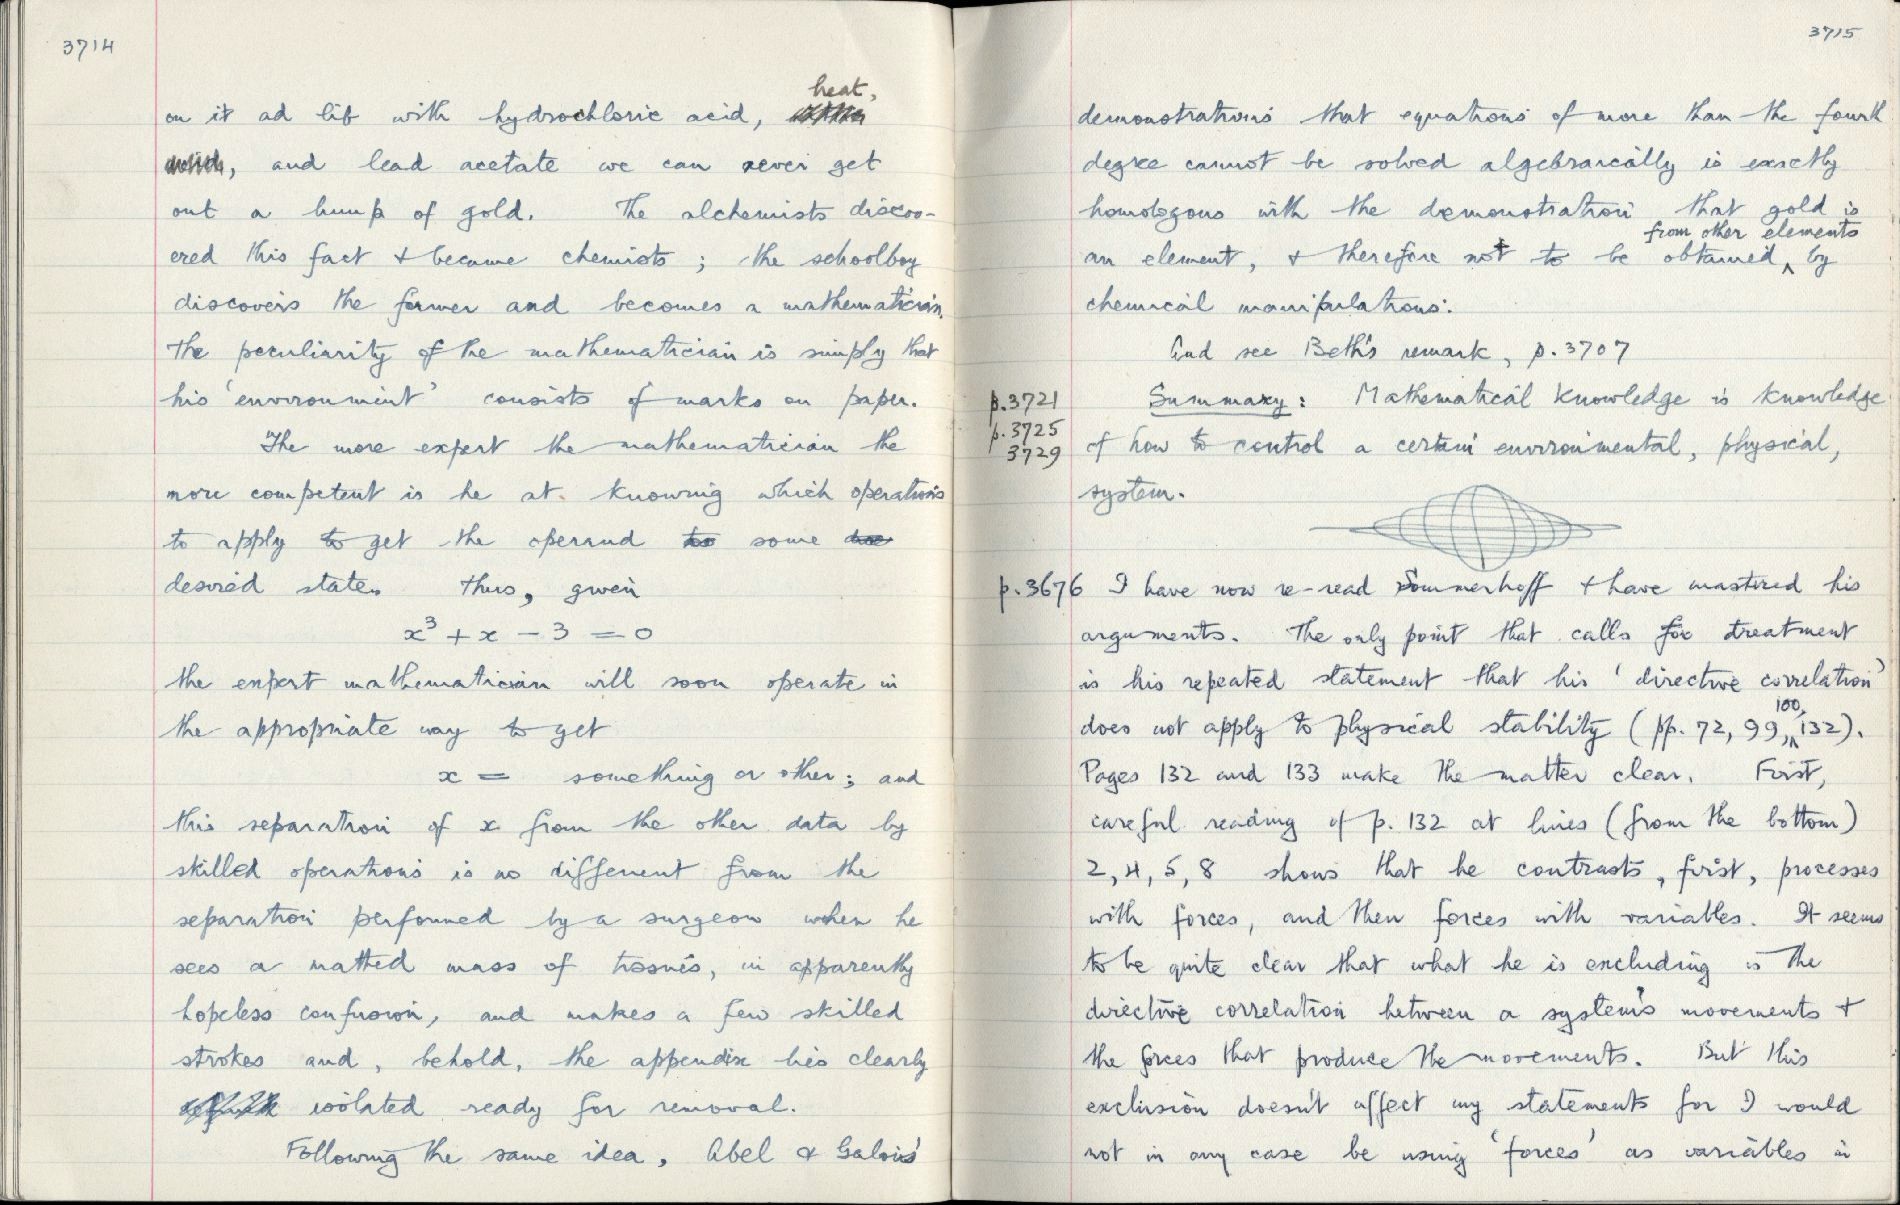 3714
heat,
on it ad lib with hydrochloric acid,
, and lead acetate we can never get
out a lump of gold. The alchemists discov-
ered this fact & became chemists ; the schoolboy
discovers the former and becomes a mathematician.
The peculiarity of the mathematician is simply that
his 'environment' consists of marks on paper.
The more expert the mathematician the
more competent is he at knowing which operations
to apply to get the operand to some
desired state. Thus, given
x³ + x - 3 = 0
the expert mathematician will soon operate in
the appropriate way to get
x = something or other ; and
this separation of x from the other data by
skilled operations is no different from the
separation performed by a surgeon when he
sees a matted mass of tissues, in apparently
hopeless confusion, and makes a few skilled
strokes and, behold, the appendix lies clearly
isolated ready for removal.
Following the same idea, Abel & Galois'
3715
demonstrations that equations of more than the fourth
degree cannot be solved algebraically is exactly
homologous with the demonstration that gold is
from other elements
an element, & therefore not to be obtained ‸ by
chemical manipulations.
And see Beth's remark, p. 3707
p.3721 Summary: Mathematical knowledge is knowledge
p.3725 of how to control a certain environmental, physical,
3729
system.
p.3676 I have now re-read Sommerhoff & have mastered his
arguments. The only point that calls for treatment
is his repeated statement that his 'directive correlation'
100,
does not apply to physical stability (pp. 72, 99, ‸ 132).
Pages 132 and 133 make the matter clear. First,
careful reading of p. 132 at lines (from the bottom)
2, 4, 5, 8 shows that he contrasts, first, processes
with forces, and then forces with variables. It seems
to be quite clear that what he is excluding is the
directive correlation between a system's movements &
the forces that produce the movements. But this
exclusion doesn't affect my statements for I would
not in any case be using 'forces' as variables in